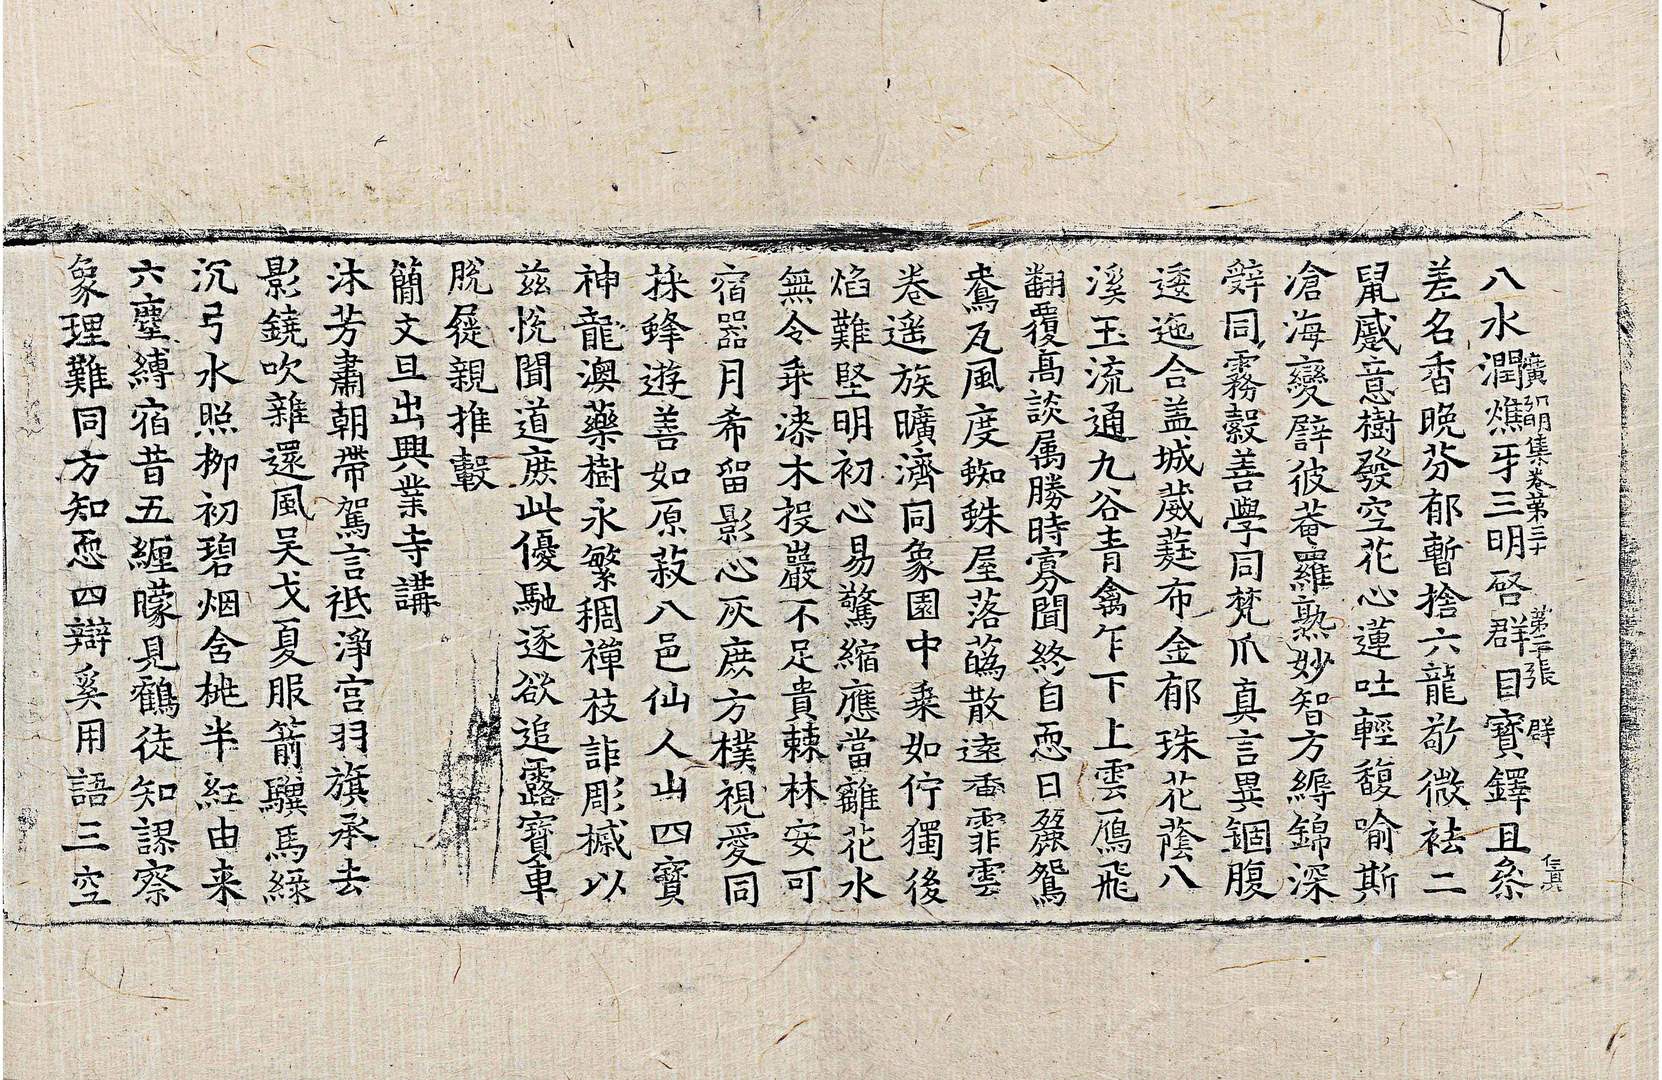 八水潤燋牙三明啓群目寶鐸且叅
廣弘明集卷第三十 第二張 群
仁真
差名香晚芬郁暫捨六龍歘微袪二
鼠感意樹發空花心蓮吐輕馥喻斯
滄海變譬彼菴羅熟妙智方縟錦深
辭同霧縠善學同梵爪真言異錮腹
逶迤合盖城葳蕤布金郁珠花蔭八
溪玉流通九谷青禽乍下上雲鴈飛
翻覆高談属勝時寡聞終自恧日麗鴛
鴦瓦風度蜘蛛屋落蘤散遠香霏雲
卷遥族曠濟同象園中乗如佇獨後
焰難堅明初心易驚縮應當離花水
無令乖漆木投巖不足貴棘林安可
宿器月希留影心灰庶方樸視愛同
採蜂遊善如原菽八邑仙人山四寶
神龍澳藥樹永繁稠禪枝詐彫摵以
兹悅聞道庶此優馳逐欲追露寶車
脫屣親推轂
簡文旦出興業寺講
沐芳肅朝帶駕言衹淨宮羽旗承去
影鐃吹雜還風吴戈夏服箭驥馬緑
沉弓水照柳初碧烟含桃半紅由来
六塵縛宿昔五纏矇見鸛徒知認察
象理難同方知恧四辯奚用語三空